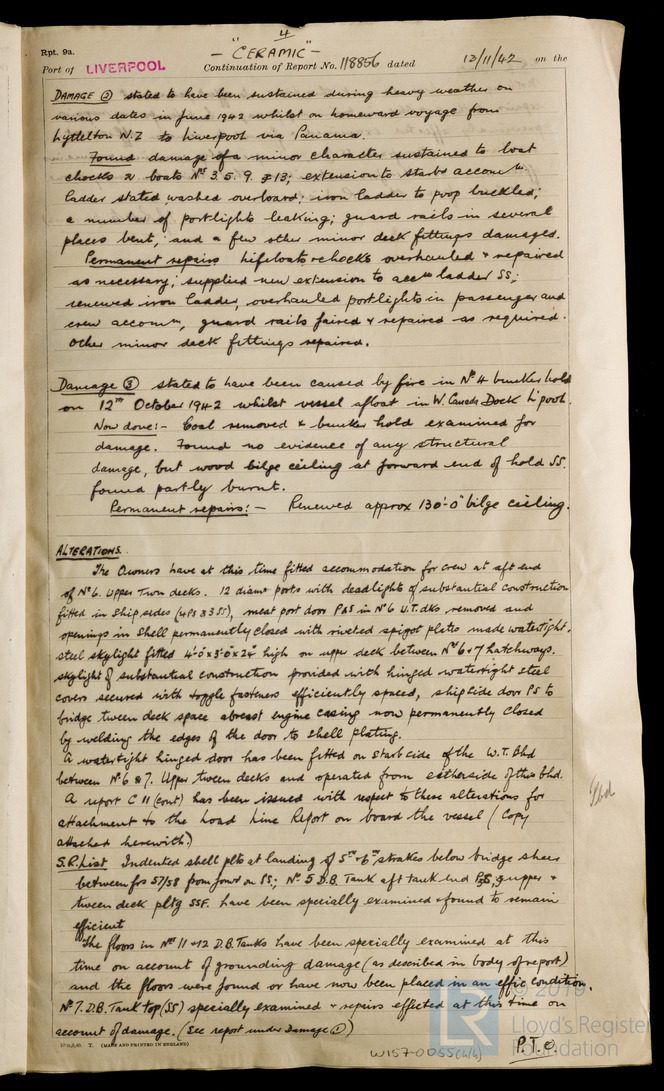 4
Rpt. 9a.
— "CERAMIC" —
Port of LIVERPOOL Continuation of Report No. 118856 dated 12/11/42 on the
DAMAGE ② stated to have been sustained during heavy weather on
various dates in June 1942 whilst on homeward voyage from
Lyttelton N.Z to Liverpool via Panama.
Found damage of a minor character sustained to boat
chocks & boats Nos 3. 5. 9. & 13; extension to starbd accomn
ladder stated washed overboard; iron ladder to poop buckled;
a number of portlights leaking; guard rails in several
places bent; and a few other minor deck fittings damaged.
Permanent repairs Lifeboats & chocks overhauled & repaired
as necessary; supplied new extension to accn ladder SS;
renewed iron ladder, overhauled portlights in passenger and
crew accomn, guard rails faired & repaired as required.
Other minor deck fittings repaired.
Damage ③ stated to have been caused by fire in No 4 bunker hold
on 12th October 1942 whilst vessel afloat in W. Canada Dock L'pool.
Now done:- Coal removed & bunker hold examined for
damage. Found no evidence of any structural
damage, but wood bilge ceiling at forward end of hold SS.
found partly burnt.
Permanent repairs:- Renewed approx 130'-0" bilge ceiling.
ALTERATIONS.
The Owners have at this time fitted accommodation for crew at aft end
of No 6. Upper Twn decks. 12 diamr ports with deadlights of substantial construction
fitted in ship sides (4 PS & 3 SS), meat port door P&S in No 6 U.T. dks removed and
openings in shell permanently closed with riveted spigot plates made watertight.
steel skylight fitted 4'-0" x 3'-0" x 24" high on upper deck between Nos 6 & 7 hatchways.
skylight of substantial construction provided with hinged watertight steel
covers secured with toggle fasteners efficiently spaced, shipside door PS to
bridge tween deck space abreast engine casing now permanently closed
by welding the edges of the door to shell plating.
A watertight hinged door has been fitted on starb side of the W.T. Bhd
between No 6 & 7. Upper tween decks and operated from eitherside of this bhd.
A report C 11 (cont) has been issued with respect to these alterations for
attachment to the Load Line Report on board the vessel (Copy
attached herewith)
S.R. List Indented shell plts at landing of 5th & 6th strakes below bridge sheer
between frs 57/58 from forwd on SS; No 5 D.B. Tank aft tank end P&S, & upper &
tween deck pltg SSF. have been specially examined & found to remain
efficient
The floors in Nos 11 & 12 D.B. Tanks have been specially examined at this
time on account of grounding damage (as described in body of report)
and the floors were found or have now been placed in an effic. condition.
No 7. D.B. Tank top (SS) specially examined & repairs effected at this time on
account of damage. (See report under Damage ①)
P.T.O.
T. (MADE AND PRINTED IN ENGLAND)
W157-0055(4/4)
© 2019
LR
Lloyd's Register
Foundation